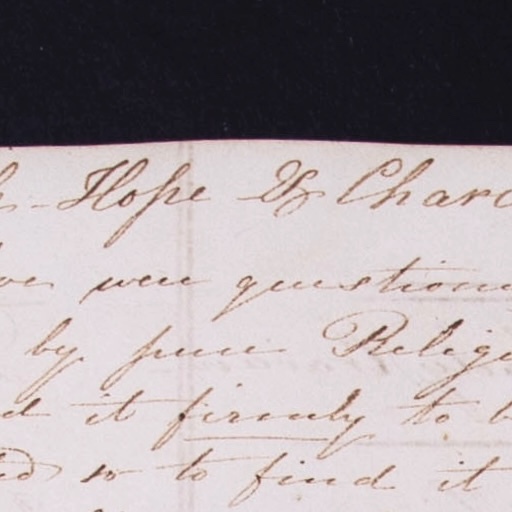 h - Hope & Char
were question
by pure Relig
it firmly to b
so to find it